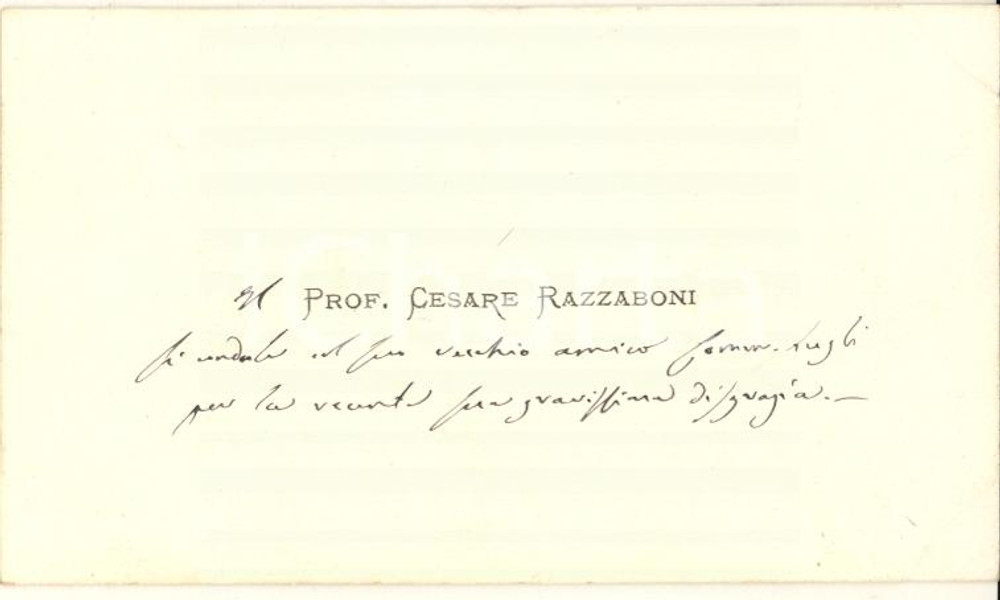 Il PROF. CESARE RAZZABONI
si conduole col suo vecchio amico Comm. Lugli
per la recente sua gravissima disgrazia. —